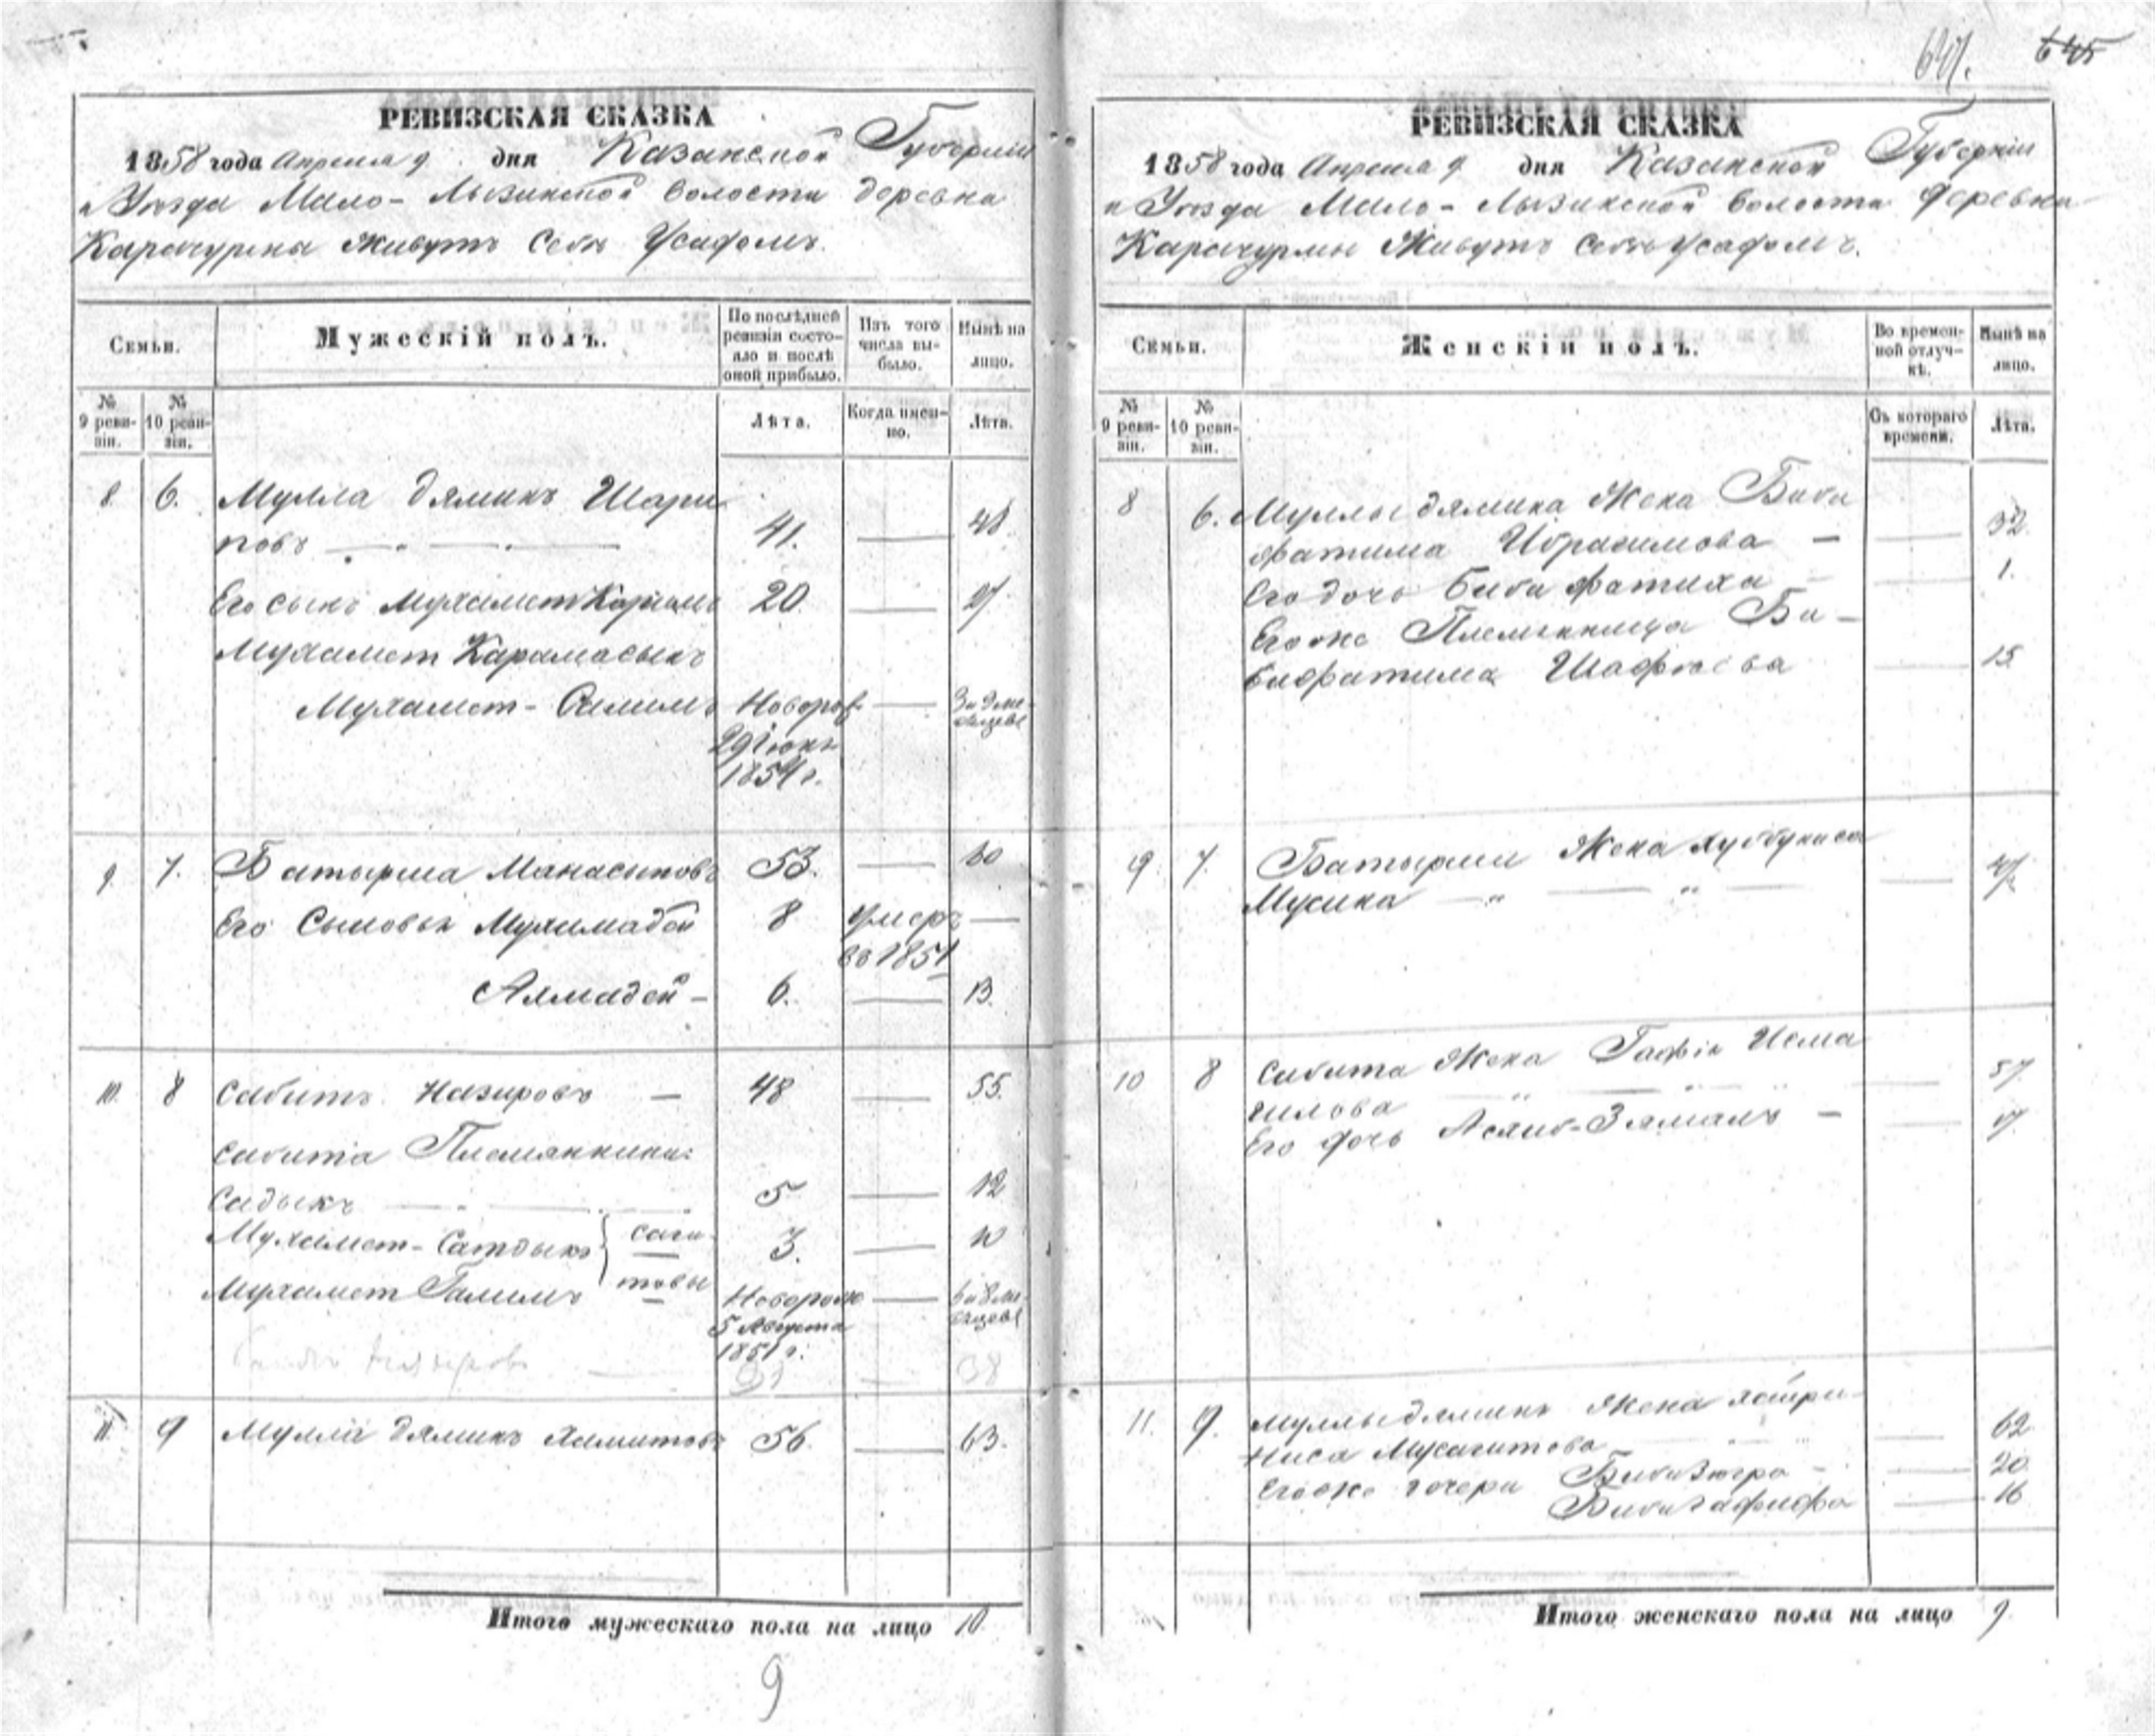 645
РЕВИЗСКАЯ СКАЗКА
1858 года Апреля 9 дня Казанской Губерніи
и Уѣзда Мало-Лызинской волости деревна
Карачурина живутъ Себѣ Усадомъ.
Семьи.
Мужескій полъ.
По послѣдней ревизіи состояло и послѣ оной прибыло.
Изъ того числа выбыло.
Нынѣ на лицо.
№ 9 ревизіи.
№ 10 ревизіи.
Лѣта.
Когда имен-но.
Лѣта.
8 6. Мулла Зяминъ Шари
повъ 41. — 48
Его сынъ Мухамет Каримъ 20 — 27
Мухамет Карамасынъ
Мухамет-Салимъ Новорож — 3 и 9 ме-
29 Іюня сяцевъ
1854 г.
9. 7. Батырша Манасыповъ 53. — 60
Его Сыновья Мухамадей 8 умеръ —
во 1851
Ахмадей — 6. — 13.
10. 8 Сабитъ Назировъ — 48 — 55.
Сабита Племянники:
Садыкъ 5 — 12
Мухамет-Сатдыкъ саги- 3. — 10
Мухамет Галимъ товы Новорож — 6 и 8 ме-
5 Августа сяцевъ
1851 г.
38
11. 9 Мулла Зяминъ Хамитовъ 56. — 63.
Итого мужескаго пола на лицо 10.
9
РЕВИЗСКАЯ СКАЗКА
1858 года Апреля 9 дня Казанской Губерніи
и Уѣзда Мало-Лызинской волости деревни
Карачурми Живутъ Себѣ Усадомъ.
Семьи.
Женскій полъ.
Во времен-
ной отлуч-
кѣ.
Нынѣ на
лицо.
№ 9 ревизіи.
№ 10 ревизіи.
Съ котораго
времени.
Лѣта.
8 6. Муллы Зямина Жена Биби
фатима Ибрагимова — — 32.
Его дочь Биби фатиха — 1.
Его же Племянница Би-
бифатима Шафѣева — 15
9. 7. Батырши Жена Хуббуниса
Мусина — 47.
10 8 Сабита Жена Гафія Исма
гилова — 57
Его дочь Асян-Зямалъ — — 17
11. 9. Муллы Зямина Жена
Ниса Мусагитова — 62
Его же дочери Биби Зюгра — — 20
Биби Гафифа — 16
Итого женскаго пола на лицо 9.